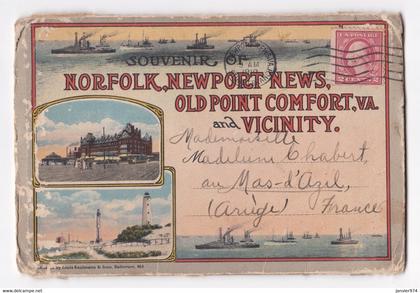 SOUVENIR OF
NORFOLK, NEWPORT NEWS,
OLD POINT COMFORT, VA.
and VICINITY.
U.S. POSTAGE
2 CENTS 2
Mademoiselle
Madeleine Chabert,
au Mas-d'Azil,
(Ariège) France
by Louis Kaufmann & Sons, Baltimore, Md.